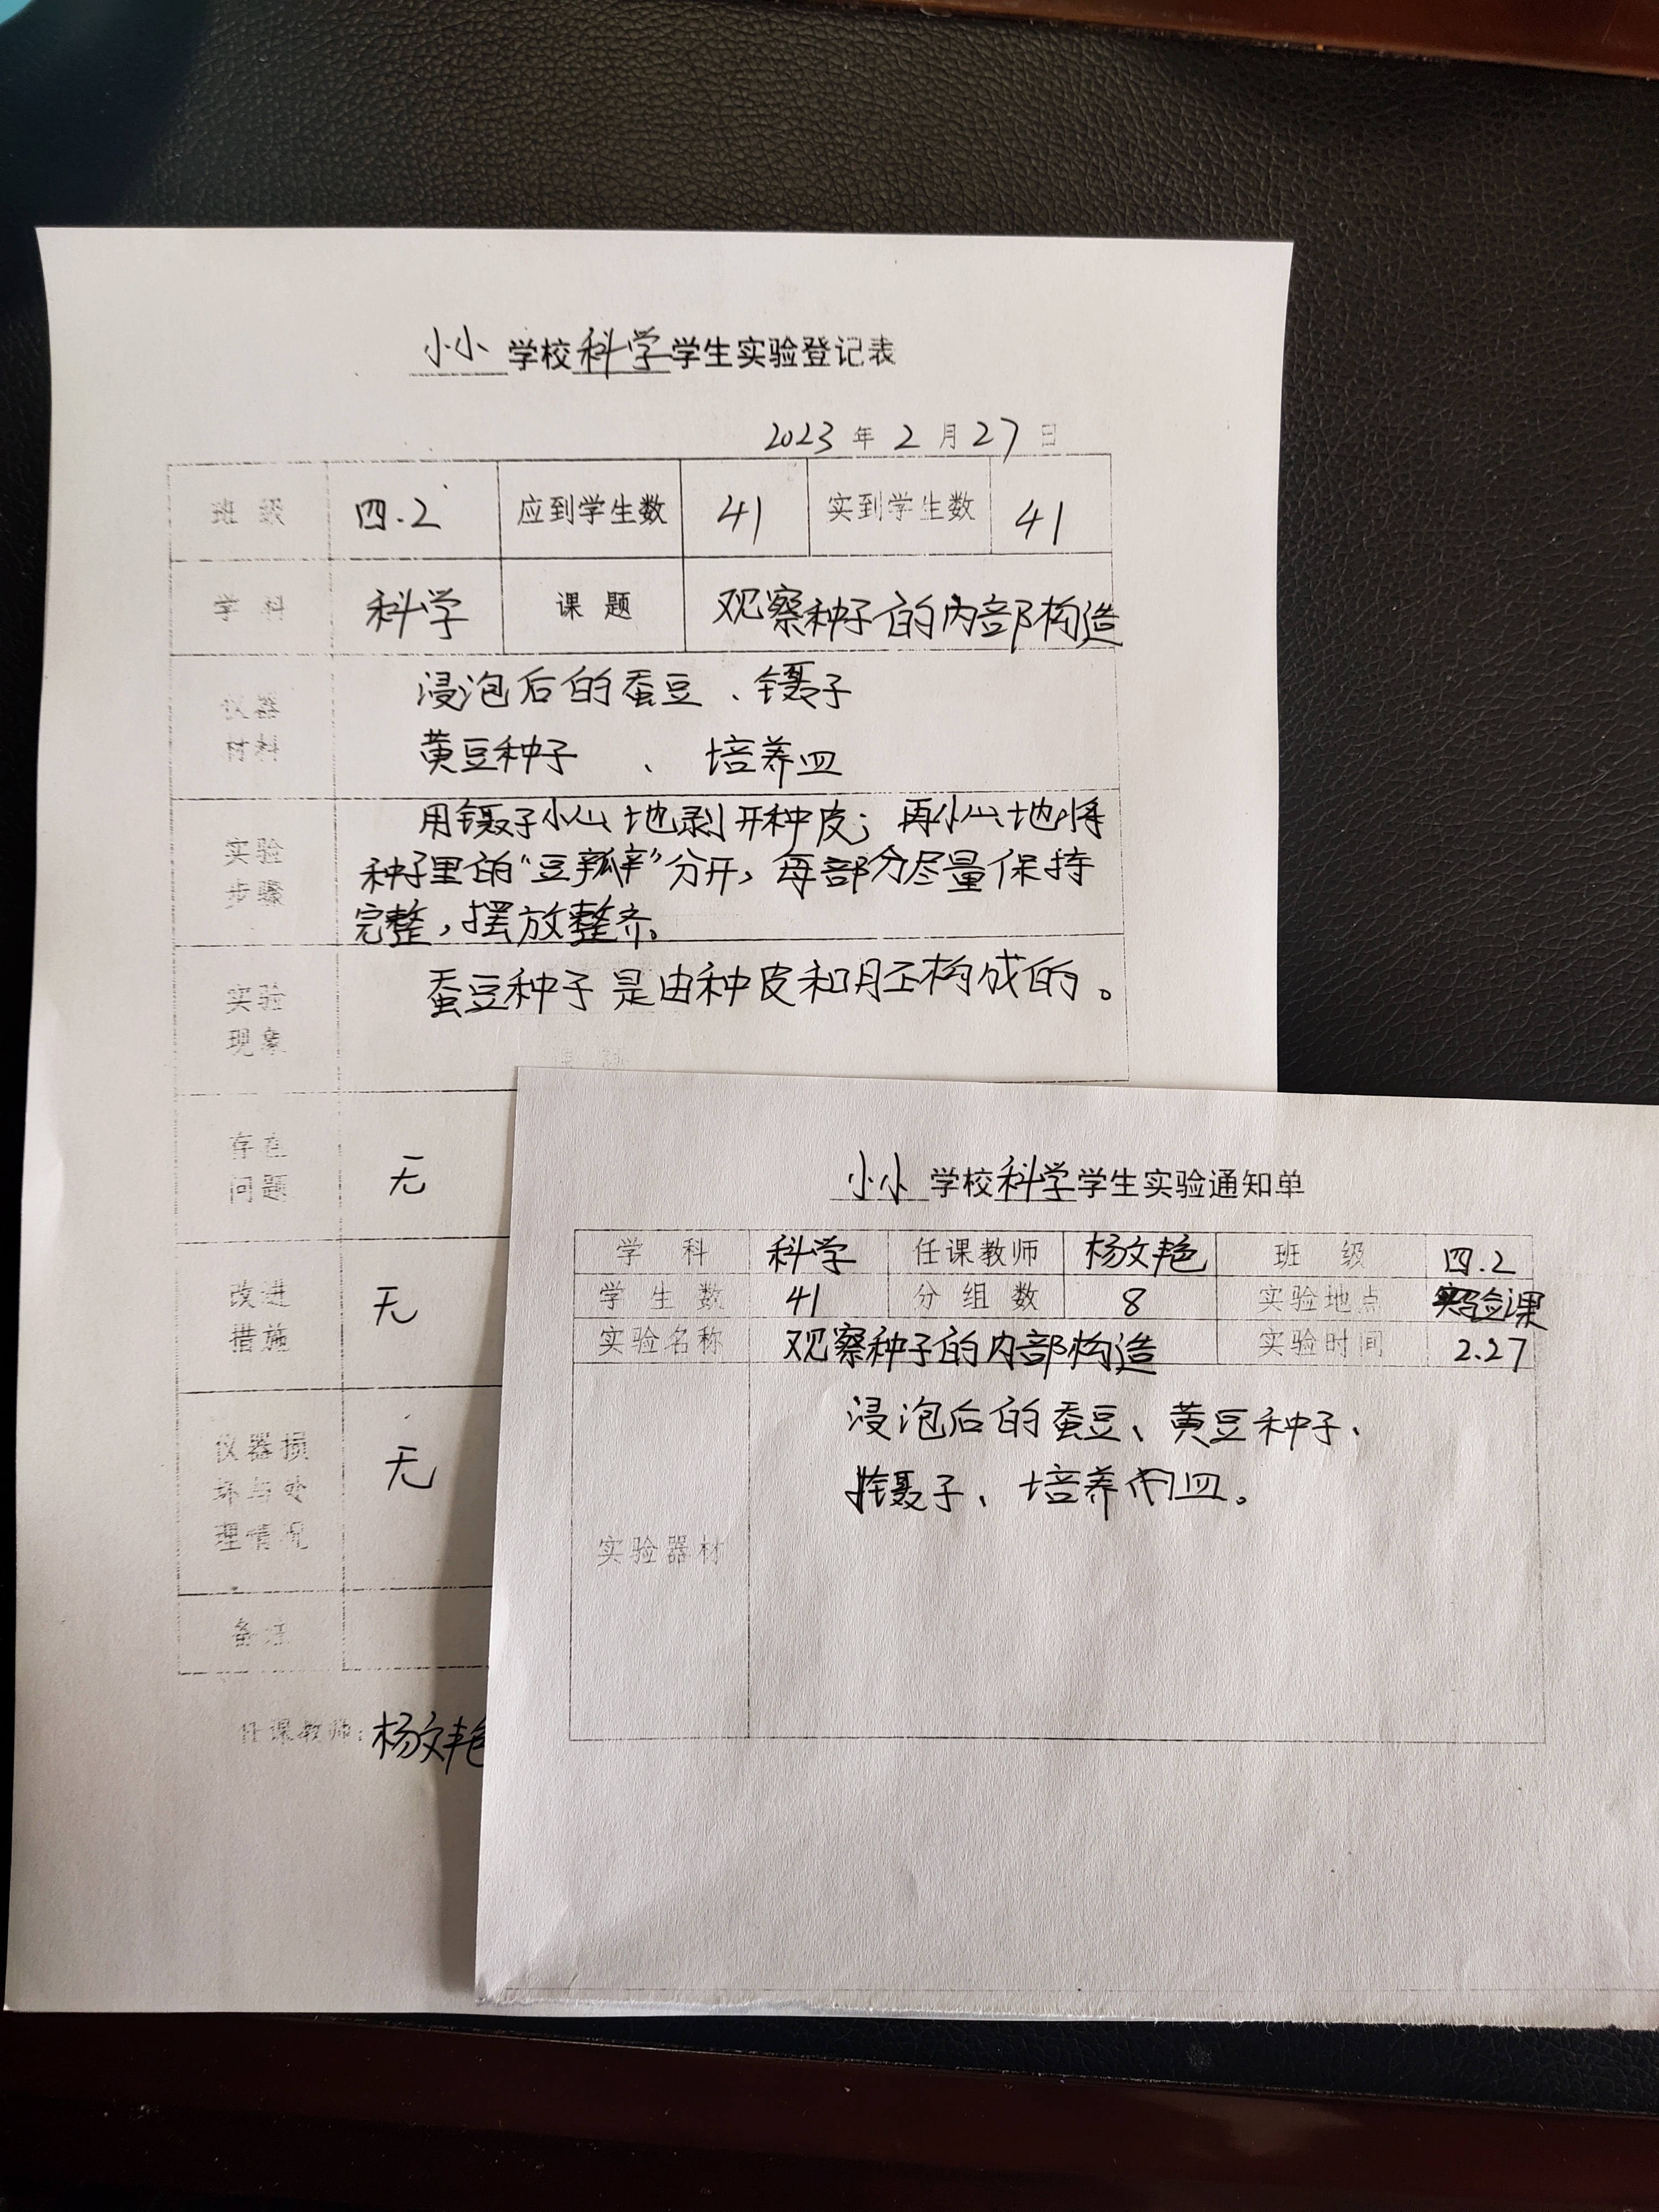 小小学校科学学生实验登记表
2023年2月27日
班级 四.2 应到学生数 41 实到学生数 41
学科 科学 课题 观察种子的内部构造
仪器材料
浸泡后的蚕豆、镊子
黄豆种子、培养皿
实验步骤
用镊子小心地剥开种皮；再小心地将
种子里的“豆瓣”分开，每部分尽量保持
完整，摆放整齐。
实验现象
蚕豆种子是由种皮和胚构成的。
存在问题 无
改进措施 无
仪器损坏与处理情况 无
备注
任课教师：杨文艳
小小学校科学学生实验通知单
学科 科学 任课教师 杨文艳 班级 四.2
学生数 41 分组数 8 实验地点 实验课
实验名称 观察种子的内部构造 实验时间 2.27
实验器材
浸泡后的蚕豆、黄豆种子、
镊子、培养皿。